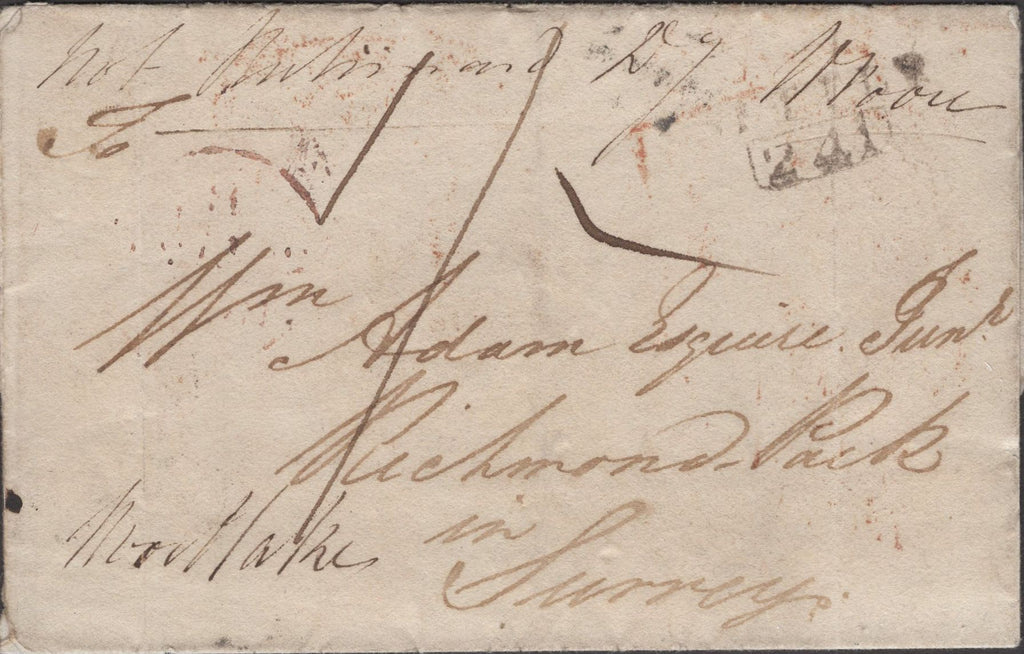 Not D. J. Moore
To
Wm
Adam Esquire Junr
Richmond Park
in
Surrey.
Mortlake
241